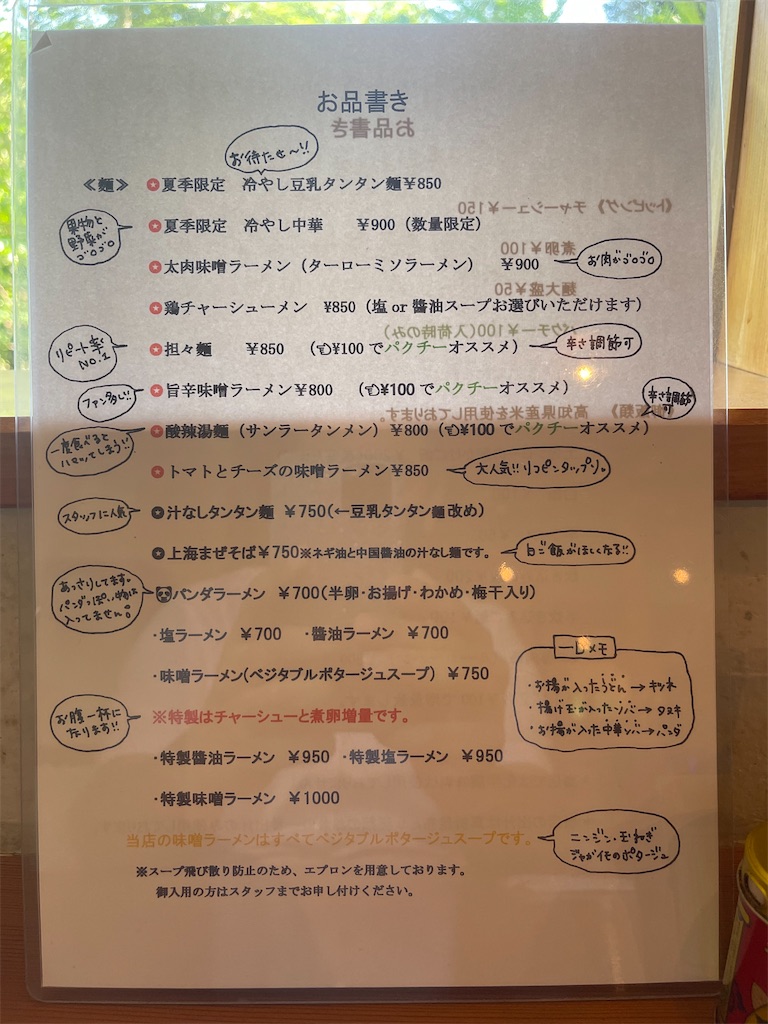 お品書き
お待たせ〜!!
≪麺≫ ✪夏季限定 冷やし豆乳タンタン麺¥850
果物と
野菜が
ゴロゴロ
✪夏季限定 冷やし中華 ¥900（数量限定）
✪太肉味噌ラーメン（ターローミソラーメン） ¥900
お肉がゴロゴロ
✪鶏チャーシューメン ¥850（塩 or 醤油スープお選びいただけます）
リピート率
NO.1
✪担々麺 ¥850 （👈¥100 でパクチーオススメ）
辛さ調節可
ファン多い!!
✪旨辛味噌ラーメン¥800 （👈¥100 でパクチーオススメ）
辛さ調節
可
一度食べると
ハマッてしまう!!
✪酸辣湯麺（サンラータンメン）¥800（👈¥100 でパクチーオススメ）
✪トマトとチーズの味噌ラーメン¥850
大人気!!リコピンタップリ。
スタッフに人気
✪汁なしタンタン麺 ¥750（←豆乳タンタン麺改め）
✪上海まぜそば¥750※ネギ油と中国醤油の汁なし麺です。
白ご飯がほしくなる!!
あっさりしてます。
パンダっぽい物は
入ってません。
🐼パンダラーメン ¥700（半卵・お揚げ・わかめ・梅干入り）
・塩ラーメン ¥700 ・醤油ラーメン ¥700
・味噌ラーメン（ベジタブルポタージュスープ） ¥750
一口メモ
・お揚が入ったうどん→キツネ
・揚げ玉が入ったソバ→タヌキ
・お揚が入った中華ソバ→パンダ
お腹一杯に
なります!!
※特製はチャーシューと煮卵増量です。
・特製醤油ラーメン ¥950 ・特製塩ラーメン ¥950
・特製味噌ラーメン ¥1000
当店の味噌ラーメンはすべてベジタブルポタージュスープです。
ニンジン・玉ねぎ
ジャガイモのポタージュ
※スープ飛び散り防止のため、エプロンを用意しております。
御入用の方はスタッフまでお申し付けください。